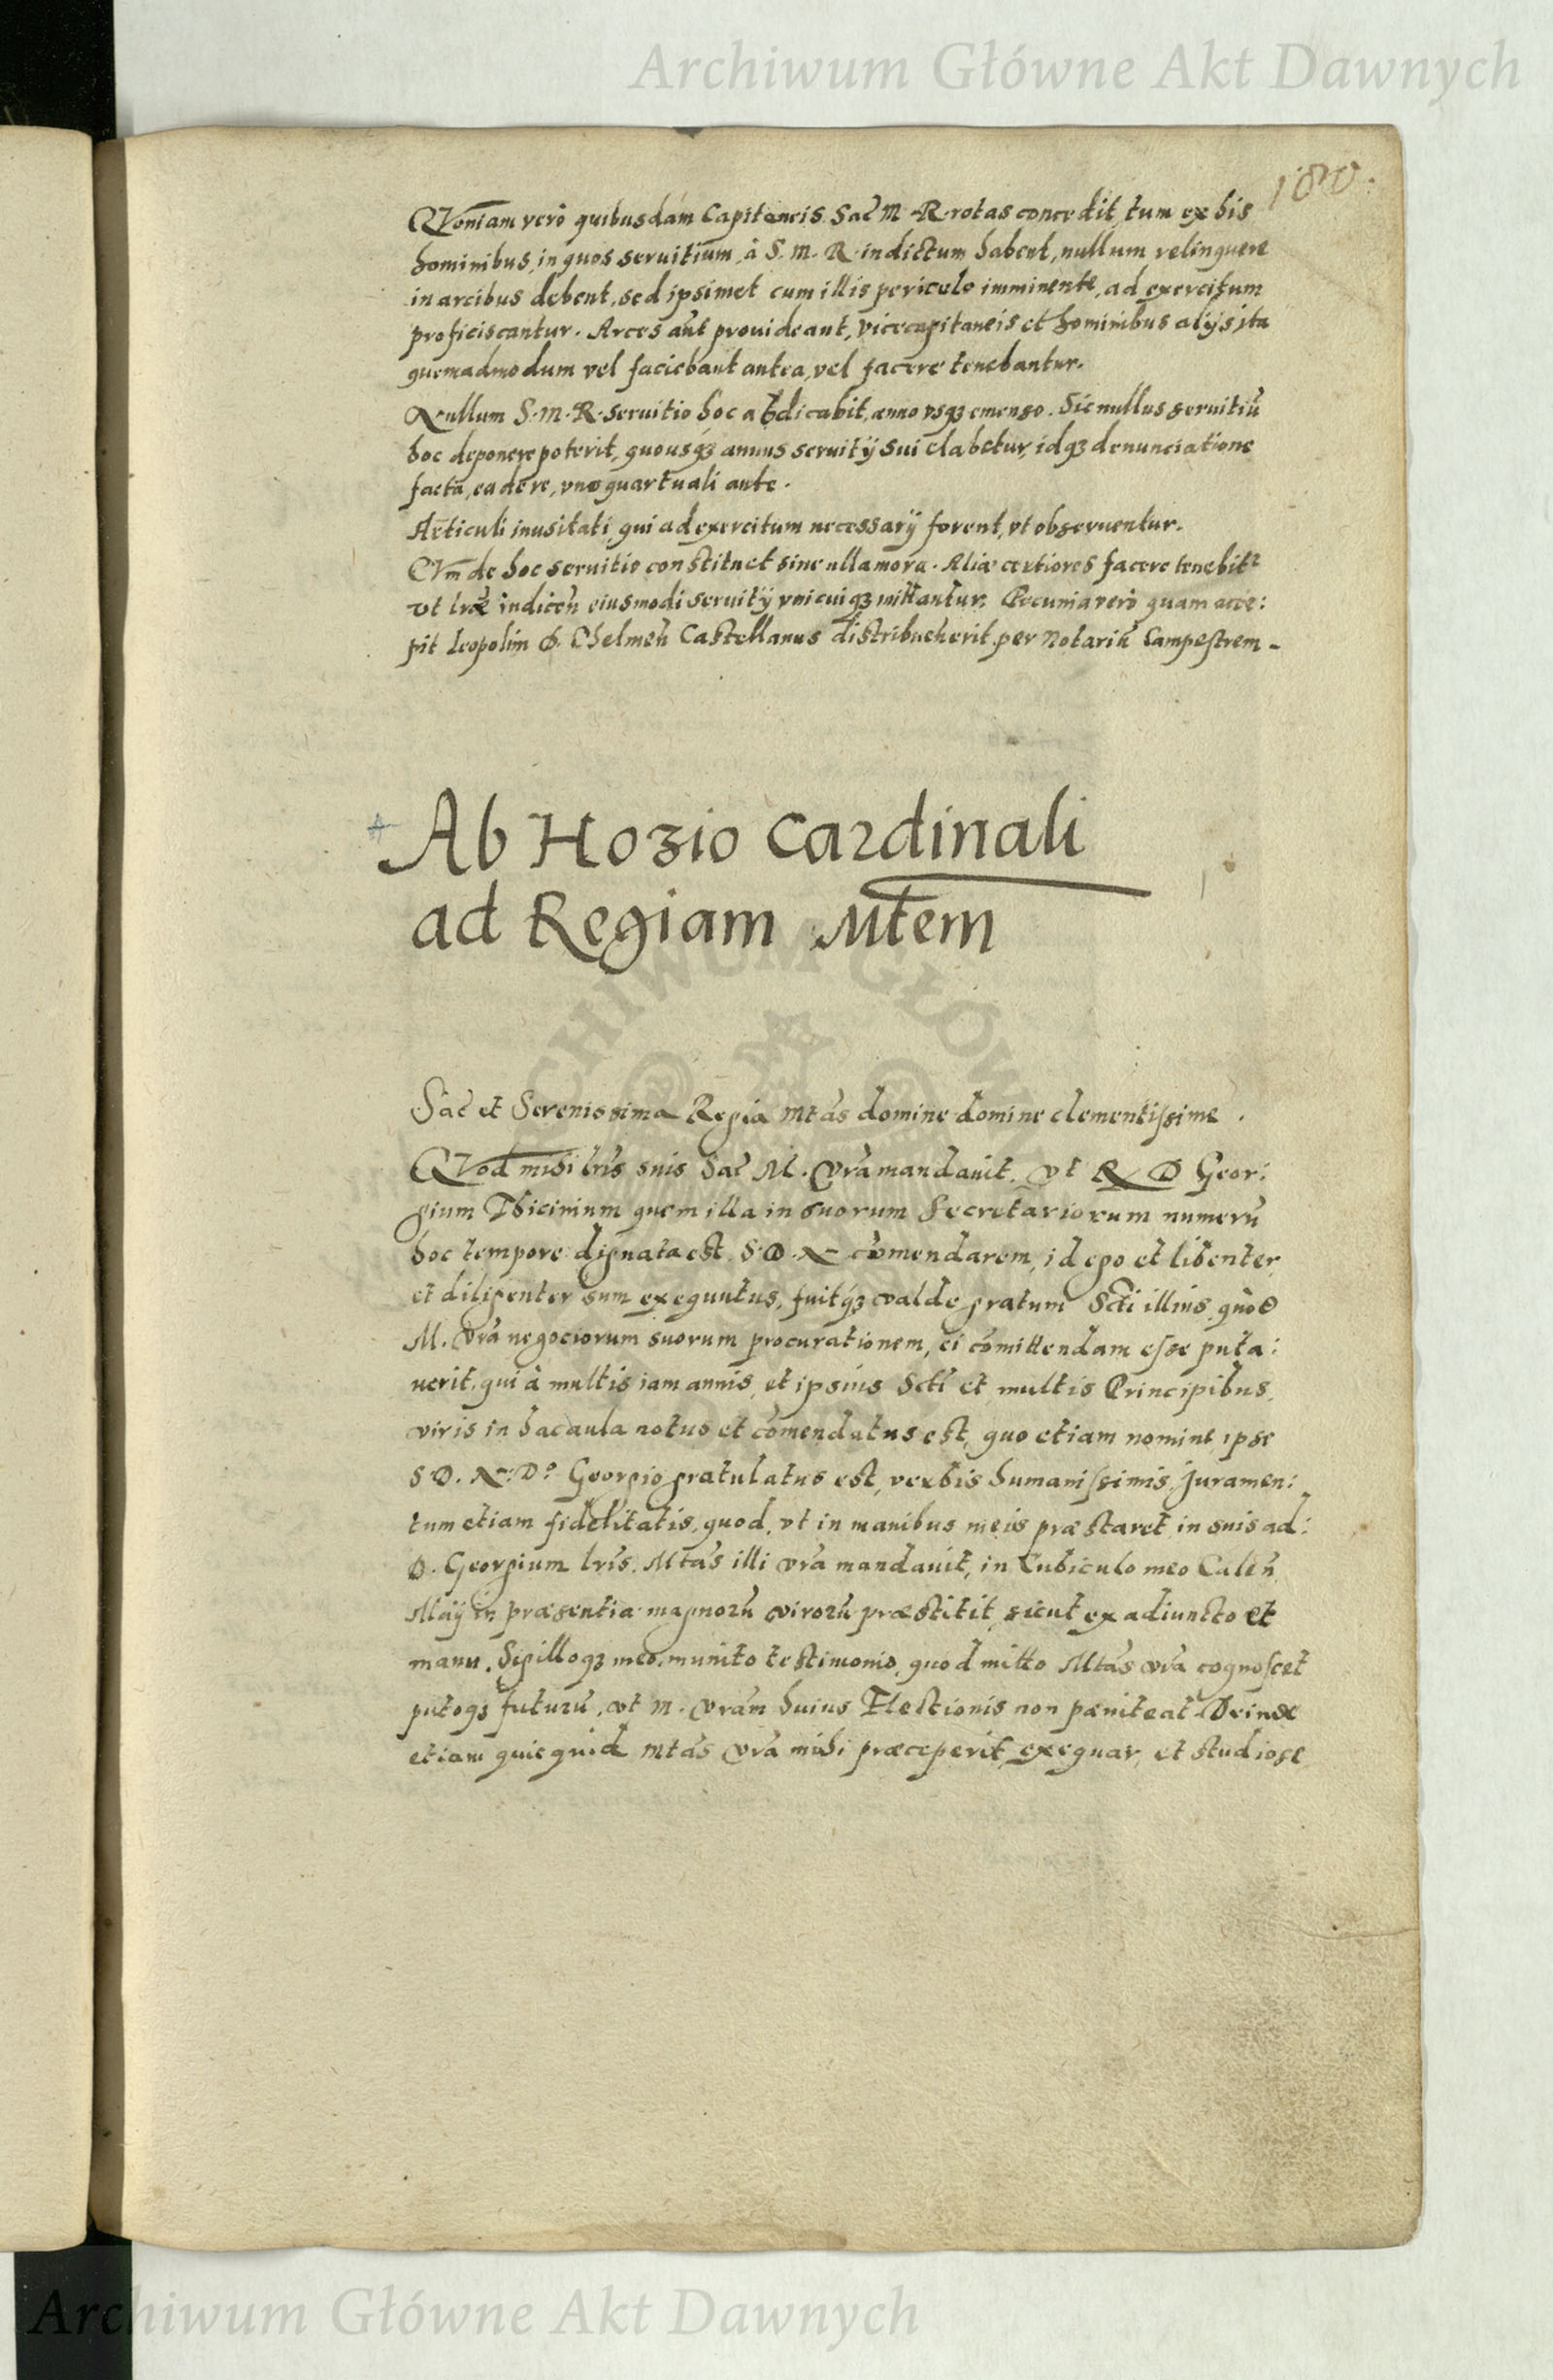 Archiwum Główne Akt Dawnych
180.
QVoniam verò quibusdam Capitaneis Sac̃ M. R. rotas concedit, tum ex his
hominibus, in quos seruitium, à S. M. R. indictum habent, nullum relinquere
in arcibus debent, sed ipsimet cum illis periculo imminente, ad exercitum
proficiscantur. Arces aũt prouideant, vicecapitaneis et hominibus alijs, ita
quemadmodum vel faciebant antea, vel facere tenebantur.
Nullum S. M. R. seruitio hoc abdicabit, anno vsq3 emenso. Sic nullus seruitiũ
hoc deponere poterit, quousq3 annus seruitij sui elabetur, idq3 denunciatione
facta, ea de re, vno quartuali ante.
Articuli inusitati, qui ad exercitum necessarij forent, vt obseruentur.
CVm̃ de hoc seruitio constituet sine ulla mora. Aliæ certiores facere tenebitr
vt lræ indiceñ eiusmodi seruitij vnicuiq3 mittantur. Pecunia verò quam acce:
pit Leopolim D. Chelmeñ Castellanus distribueherit per Notariũ Campestrem -
Ab Hozio Cardinali
ad Regiam Mtem
Sac̃ et Serenissima Regia Mtãs domine domine clementissime.
QVod mihi lrĩs suis Sac̃ M. vrã mandauit, vt R D Geor:
gium Thicinium quem illa in suorum Secretariorum numerũ
hoc tempore dignata est S. D. N. cõmendarem, id ego et libenter,
et diligenter sum exequutus, fuitq3 valde gratum Scti illius, quòd
M. vrã negociorum suorum procurationem, ei cõmittendam esse puta:
uerit, qui à multis iam annis, et ipsius Scti et multis Principibus,
viris in hac aula notus et cõmendatus est, quo etiam nomine ipse
S. D. N. Do Georgio gratulatus est, verbis humanissimis, juramen:
tum etiam fidelitatis, quod, vt in manibus meis præstaret, in suis ad:
D. Georgium lrĩs. Mtãs illi vrã mandauit, in Cubiculo meo Caleñ
Maij in præsentia magnorũ virorũ præstitit, sicut ex adiuncto et
manu, Sigilloq3 meo, munito testimonio, quod mitto Mtãs vrã cognoscet
putoq3 futurũ, vt M. vrãm huius Electionis non pæniteat. Deinde
etiam quicquid Mtãs vrã mihi præceperit, exequar, et studiose
Archiwum Główne Akt Dawnych